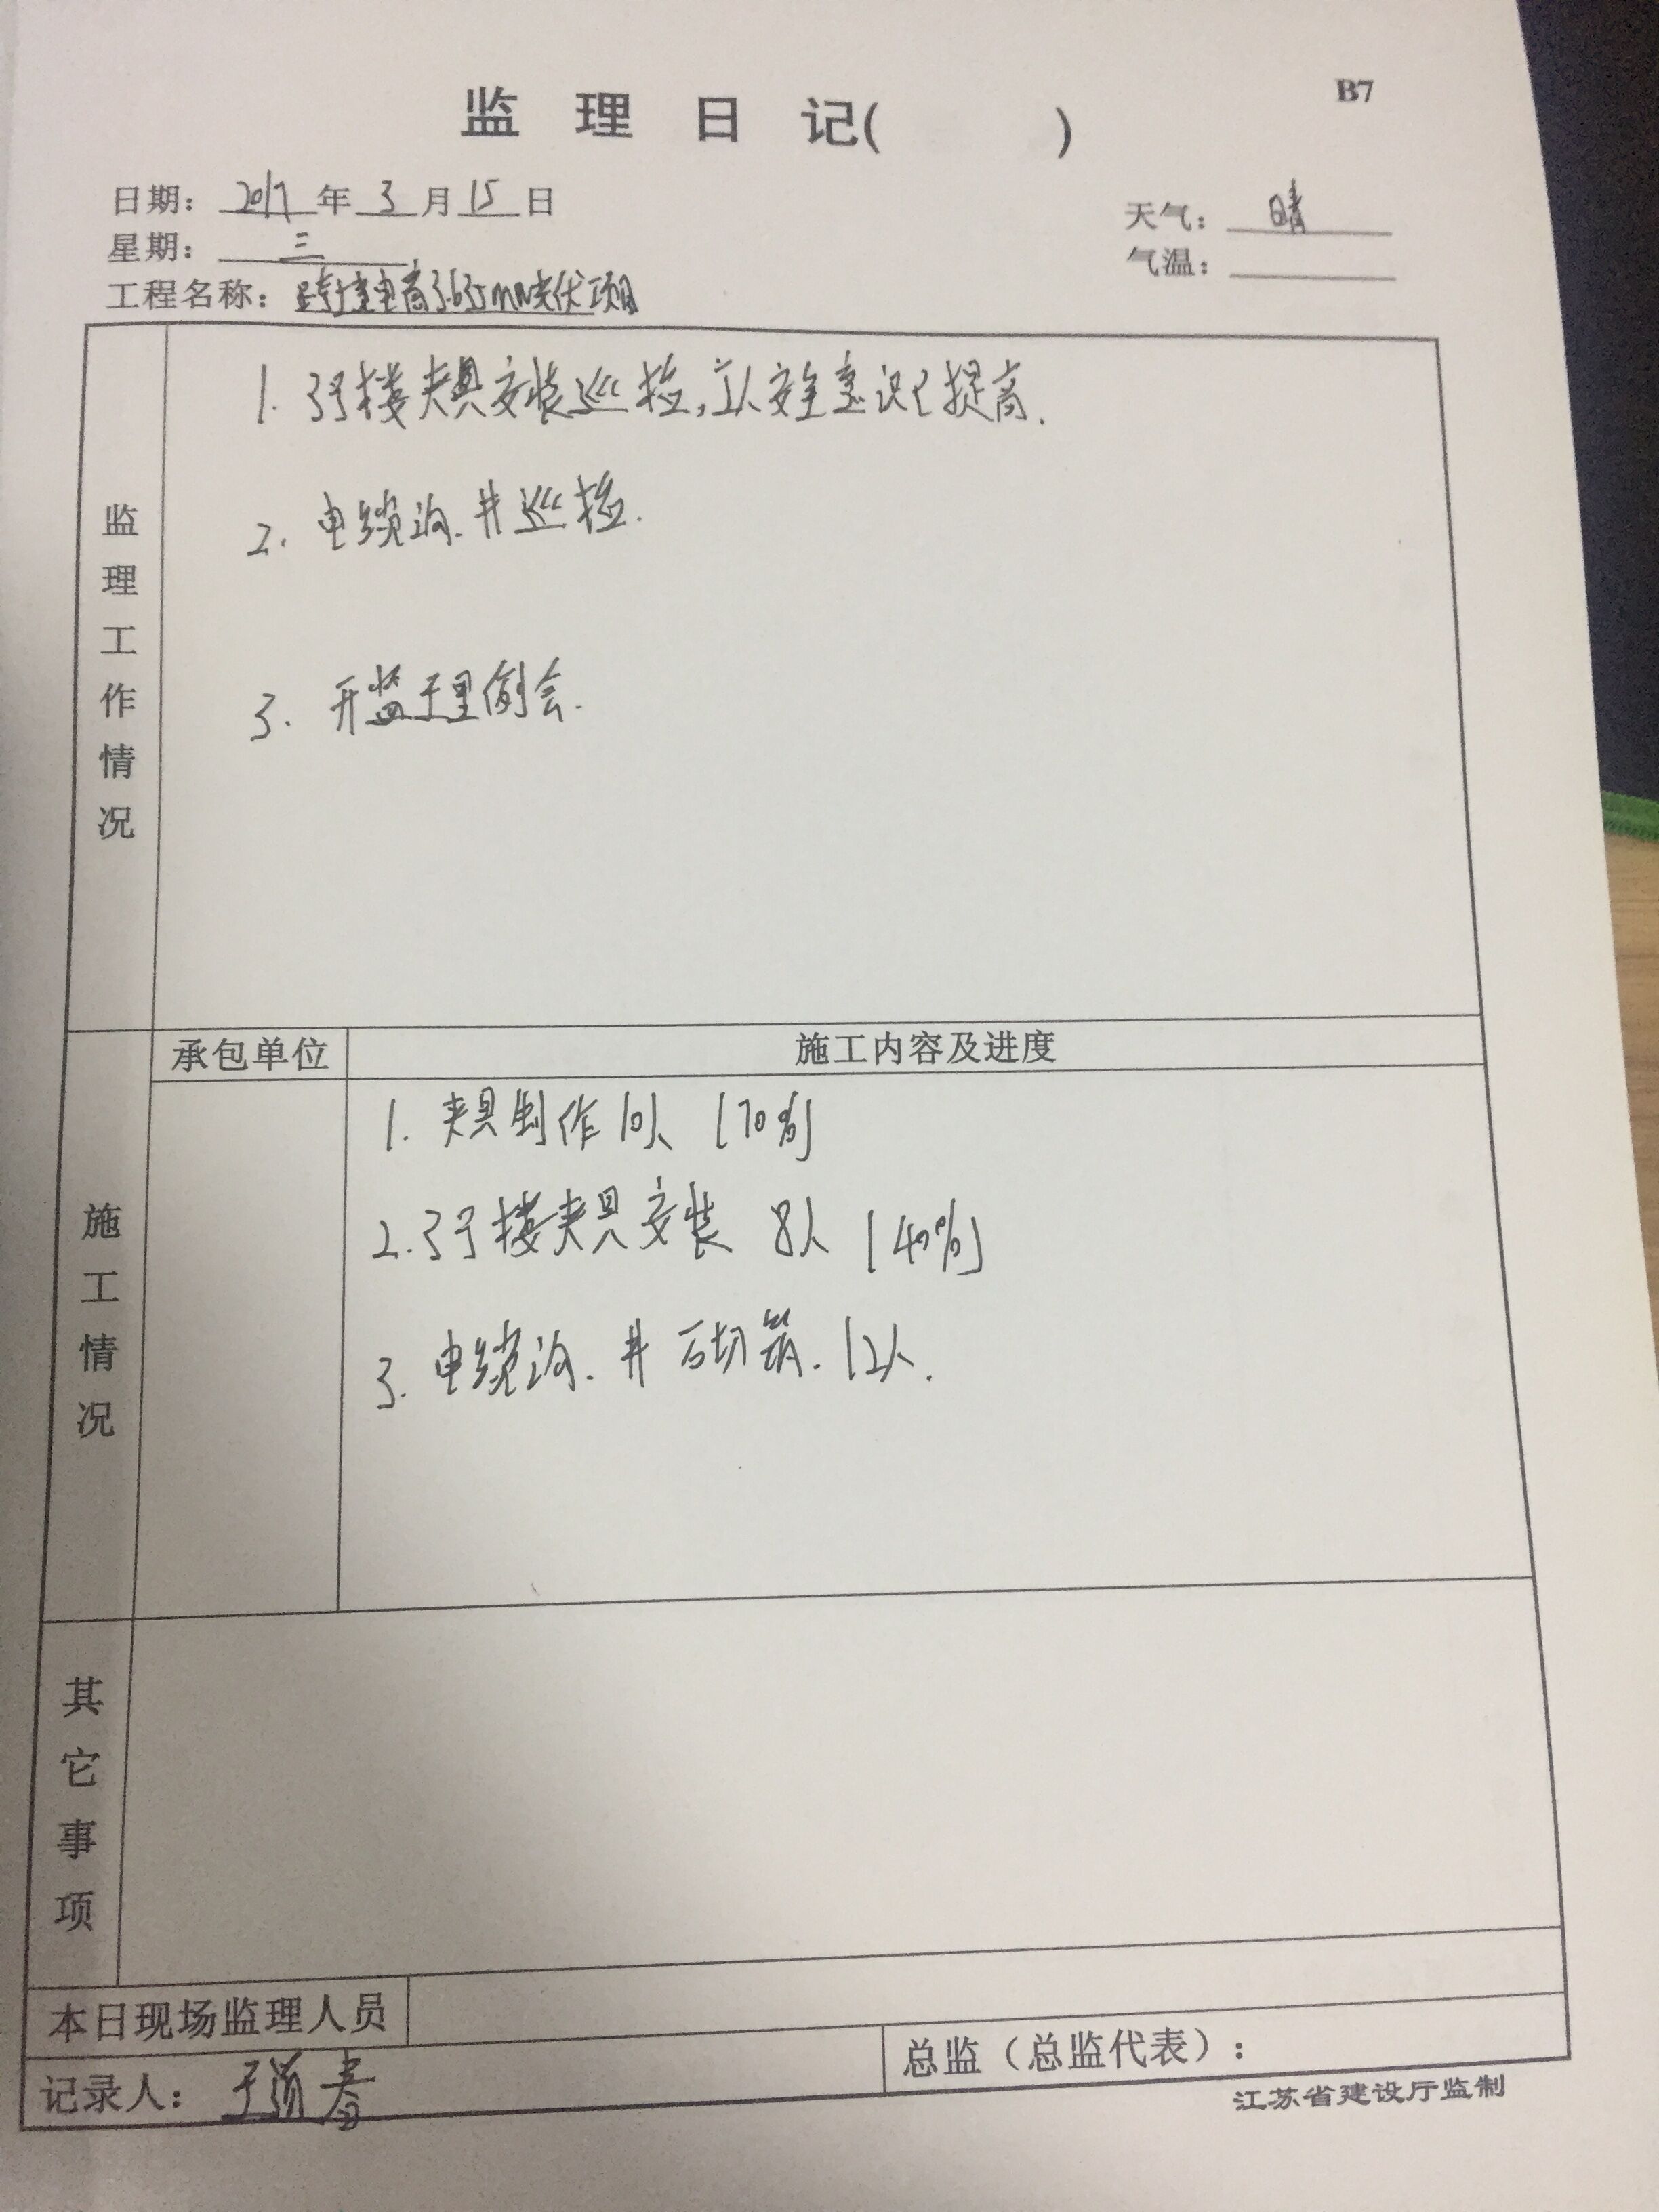 B7
监理日记( )
日期: 2017年3月15日
天气: 晴
星期: 三
气温:
工程名称: 跨境电商3.635MW光伏项目
监理工作情况
1. 3号楼夹具安装巡检,工人安全意识已提高.
2. 电缆沟.井巡检.
3. 开监理例会.
施工情况
承包单位 施工内容及进度
1. 夹具制作10人 (70%)
2. 3号楼夹具安装 8人 (40%)
3. 电缆沟.井砌筑.12人.
其它事项
本日现场监理人员
记录人: 于 春
总监(总监代表):
江苏省建设厅监制